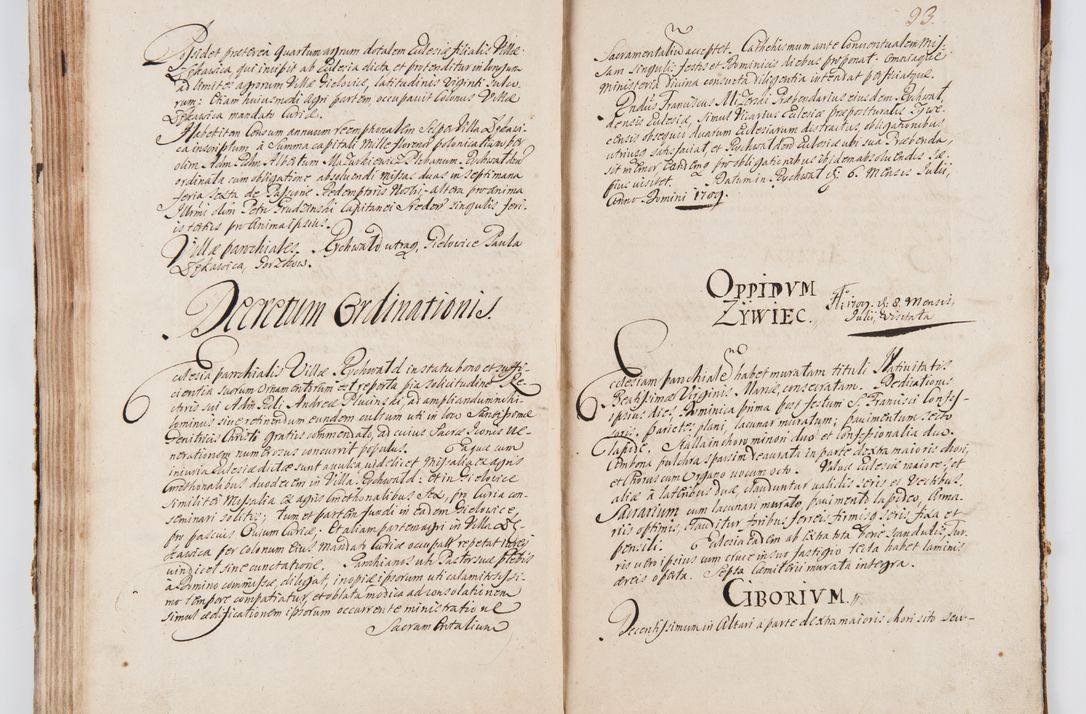 Possidet præterea quartum agrum dotalem Ecclesiæ filialis Villæ
Łękawica, qui incipit ab Ecclesia dicta et protenditur in longum
ad limites agrorum Villæ Gielovice, latitudinis viginti sulco-
rum: Etiam huiusmodi agri partem occupavit Colonus Villæ
Łękawica mandato Curiæ.
Habet item Censum annuum reemptionalem super Villa Łękawi-
ca inscriptum à Summa capitali Mille florenor: polonicalium per
olim Adm Rndm Albertum Mazurkiewicz Plebanum Rychwalden
ordinata cum obligatione absolvendi missas duas in Septimana
feria Sexta de Passione Redemptoris Nostri, altera pro anima
Mgfci olim Petri Grudzinski Capitanei Sreden singulis feri-
is tertiis pro anima ipsius.
Villæ parochiales. Rychwald utraq, Gielovice Paula
Łękawica, Gorzkow.
Decretum Ordinationis
Ecclesia parochialis Villæ Rychwald in statu bono et suffi-
cientia suorum Ornamentorum est reperta pia solicitudine Re-
ctoris sui Adm Rndi Andreæ Plucinski, ad ampliandum nihi-
lominus sive retinendum eundem cultum uti in loco Sanctissimæ
Genitricis Christi gratiis commendato, ad cuius Sacræ Iconis ve-
nerationem numerosus concurrit populus. Eaque cum
iniuria Ecclesiæ dictæ sunt avulsa videlicet Missalia ex agris
Cmethonalibus duodecim in Villa Rychwald: et in Gielovice
similiter Missalia ex agris Cmethonalibus sex, pro Curia con-
seminari solitis; tum et partem fundi in eadem Gielovice,
pro pascuis Ovium Curiæ; et aliam partem agri in Villa Łę-
kawica per colonum eius mandato Curiæ occupatam repetat
vindicet sine cunctatione. Parochianos uti Pastor suæ plebis
à Domino commissæ, diligat, inopiæ ipsorum uti calamitosissi-
mo tempore compatiatur, et oblata modica ad consolationem
simul ædificationem ipsorum occurrente ministratione
Sacramentalium
93.
Sacramentaliu acceptet. Cathechismum ante Conventualem Mis-
sam singulis festis et Dominicis diebus proponat. Omniaque
ministeria divina consueta diligentia intendat perficiatque.
Rndus Franciscus Mizerski Præbendarius eiusdem Rychwal-
densis Ecclesiæ, simul Vicarius Ecclesiæ præposituralis Zywe-
censis obsequiis duarum Ecclesiarum distractus, obligationibus
utriusq satisfaciat, et Rychwalden Ecclesiæ ubi sua Præbenda,
sit memor, eandemq pro obligationibus ibidem absolvendis sæ-
pius visitet. Datum in Rychwald d: 6 Mensis Julii,
Anno Domini 1709.
OPPIDVM
ZYWIEC.
A: 1709. d: 8. Mensis,
Julii, visitata
Ecclesiam parochiale habet muratam tituli Nativitatis
Beatissimæ Virginis Mariæ, consecratam. Dedicationis
ipsius dies Dominica prima post festum S. Francisci Confes-
soris. Parietes plani, lacunar muratum; pavimentum Secto
Lapide. Stalla in choro minori duo et Confessionalia duo.
Ambona pulchra sparsim deaurata in parte dextra maioris chori,
et Chorus cum Organo vocum octo. Valvæ Ecclesiæ maiores, et
aliæ à lateribus duæ, clauduntur validis seris et Vectibus.
Sacrarium cum lacunari murato, pavimento lapideo, Arma-
riis optimis, clauditur foribus ferreis firmisq seris fixa et
pensili. Ecclesia eadem ab extra tota bene scandulis, Tur-
ris vero ipsius cum cruce in suo fastigio tecta habet laminis
æreis operta. Septa Cæmiterii murata integra.
CIBORIVM.
Decentissimum in Altari a parte dextra maioris chori sito scu-